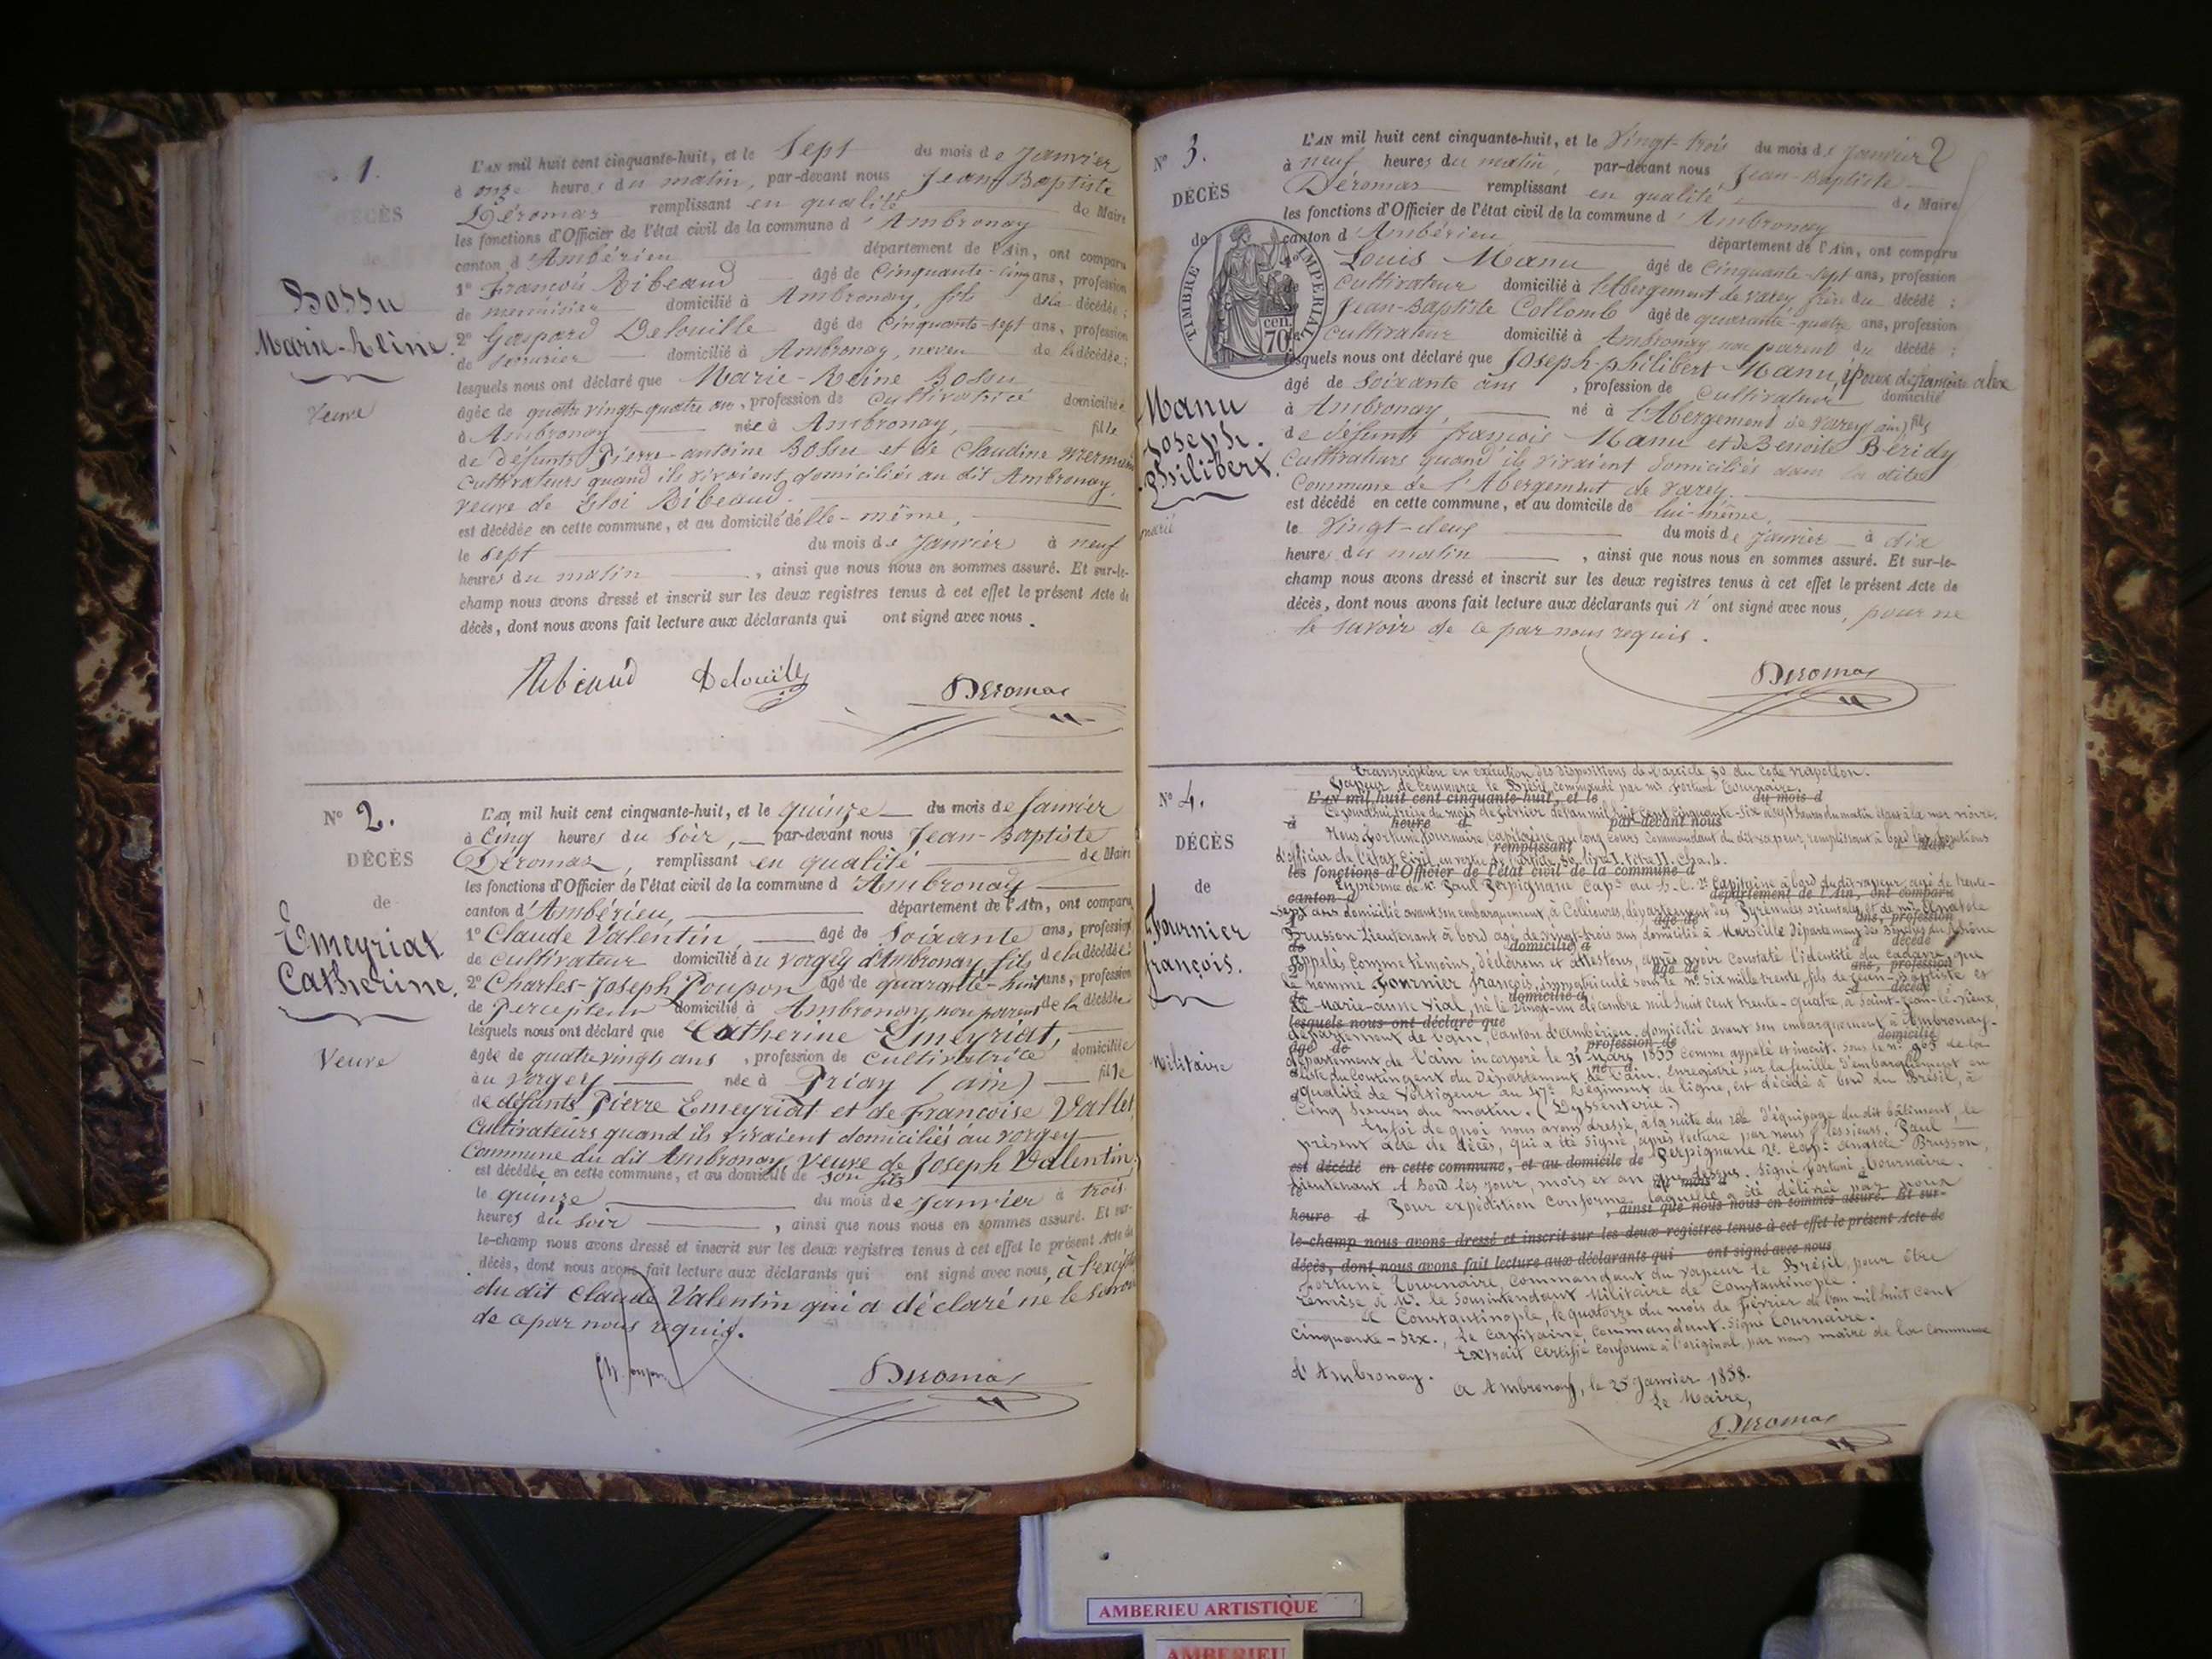 1.
DÉCÈS
de
Bossu
Marie-Reine.
Veuve
L'AN mil huit cent cinquante-huit, et le Sept du mois de Janvier
à onze heures du matin, par-devant nous Jean-Baptiste
Déromas remplissant en qualité de Maire
les fonctions d'Officier de l'état civil de la commune d'Ambronay
canton d'Ambérieu département de l'Ain, ont comparu
1° François Ribeaud âgé de Cinquante-cinq ans, profession
de menuisier domicilié à Ambronay, fils de la décédée ;
2° Gaspard Delouille âgé de Cinquante-sept ans, profession
de Serrurier domicilié à Ambronay, neveu de la décédée ;
lesquels nous ont déclaré que Marie-Reine Bossu
âgée de quatre vingt-quatre ans, profession de Cultivatrice domiciliée
à Ambronay née à Ambronay, fille
de défunts Pierre-antoine Bossu et de Claudine
Cultivateurs quand ils vivaient domiciliés au dit Ambronay,
veuve de Eloi Ribeaud.
est décédée en cette commune, et au domicile d'elle-même,
le Sept du mois de Janvier à neuf
heures du matin, ainsi que nous nous en sommes assuré. Et sur-le-
champ nous avons dressé et inscrit sur les deux registres tenus à cet effet le présent Acte de
décès, dont nous avons fait lecture aux déclarants qui ont signé avec nous.
Ribeaud Delouille Déromas
N° 2.
DÉCÈS
de
Emeyriat
Catherine.
Veuve
L'AN mil huit cent cinquante-huit, et le quinze du mois de Janvier
à Cinq heures du Soir, par-devant nous Jean-Baptiste
Déromas, remplissant en qualité de Maire
les fonctions d'Officier de l'état civil de la commune d'Ambronay
canton d'Ambérieu, département de l'Ain, ont comparu
1° Claude Valentin, âgé de Soixante ans, profession
de Cultivateur domicilié au vorgey d'Ambronay, fils de la décédée ;
2° Charles-Joseph Poupon âgé de quarante-huit ans, profession
de Percepteur domicilié à Ambronay, non parent de la décédée
lesquels nous ont déclaré que Catherine Emeyriat,
âgée de quatre vingts ans, profession de Cultivatrice domiciliée
au vorgey née à Priay (ain) fille
de défunts Pierre Emeyriat et de Françoise Vallet,
Cultivateurs quand ils vivaient domiciliés au vorgey
Commune du dit Ambronay, veuve de Joseph Valentin,
est décédée en cette commune, et au domicile de son fils
le quinze du mois de Janvier à trois
heures du Soir, ainsi que nous nous en sommes assuré. Et sur-
le-champ nous avons dressé et inscrit sur les deux registres tenus à cet effet le présent Acte de
décès, dont nous avons fait lecture aux déclarants qui ont signé avec nous, à l'exception
du dit Claude Valentin qui a déclaré ne le savoir
de ce par nous requis.
Déromas
2
N° 3.
DÉCÈS
de
TIMBRE IMPÉRIAL
70 cen.
Manu
Joseph.
Philibert.
marié
L'AN mil huit cent cinquante-huit, et le Vingt-trois du mois de Janvier
à neuf heures du matin, par-devant nous Jean-Baptiste
Déromas remplissant en qualité de Maire
les fonctions d'Officier de l'état civil de la commune d'Ambronay
canton d'Ambérieu département de l'Ain, ont comparu
1° Louis Manu âgé de Cinquante-sept ans, profession
de Cultivateur domicilié à l'Abergement de varey frère du décédé ;
2° Jean-Baptiste Collomb âgé de quarante-quatre ans, profession
de Cultivateur domicilié à Ambronay non parent du décédé ;
lesquels nous ont déclaré que Joseph-philibert Manu, époux de françoise alex
âgé de Soixante ans, profession de Cultivateur domicilié
à Ambronay, né à l'Abergement de varey (ain) fils
de défunts françois Manu et de Benoite Béridy
Cultivateurs quand ils vivaient domiciliés dans la dite
Commune de l'Abergement de varey.
est décédé en cette commune, et au domicile de lui-même,
le Vingt-deux du mois de Janvier à dix
heures du matin, ainsi que nous nous en sommes assuré. Et sur-le-
champ nous avons dressé et inscrit sur les deux registres tenus à cet effet le présent Acte de
décès, dont nous avons fait lecture aux déclarants qui n'ont signé avec nous, pour ne
le savoir de ce par nous requis.
Déromas
N° 4.
DÉCÈS
de
Fournier
françois.
Militaire
transcription en exécution des dispositions de l'article 80 du Code Napoléon.
Vapeur de Commerce le Brésil, commandé par mr Fortuné Tournaire.
L'AN mil huit cent cinquante-huit, et le du mois d
Cejourd'hui treize du mois de février de l'an mil huit cent cinquante-six à sept heures du matin étant à la mer noire.
à heure d par-devant nous
Nous fortuné Tournaire, Capitaine au long cours Commandant du dit vapeur, remplissant à bord les fonctions
remplissant de Maire
d'officier de l'état Civil, en vertu de l'article 59 livre I. titre II. Cha. 4.
les fonctions d'Officier de l'état civil de la commune d
En présence de Mr. Paul Perpignane Capne au L. C. 2e Capitaine à bord du dit vapeur, agé de trente-
canton d département de l'Ain, ont comparu
sept ans domicilié avant son embarquement, à Collioures, département des Pyrénées orientales, et de mr. Anatole
âgé de ans, profession
Brusson Lieutenant à bord agé de vingt-trois ans domicilié à Marseille département des Bouches du Rhône
de domicilié à décédé
appelés comme témoins, déclarons et attestons, après avoir constaté l'identité du cadavre, que
âgé de ans, profession
le nommé Fournier françois, immatriculé sous le no. six mille trente, fils de Jean-Baptiste et
de domicilié à décédé
de Marie-anne Vial, né le vingt-un décembre mil huit cent trente-quatre, à Saint-Jean-le-Vieux,
lesquels nous ont déclaré que
département de l'ain, Canton d'ambérieu, domicilié avant son embarquement à Ambronay.
âgé de profession de domicilié
département de l'ain incorporé le 31 mars 1855 comme appelé et inscrit sous le no. 905 de la
né à
liste du Contingent du Département de l'ain. Enregistré sur la feuille d'embarquement en
qualité de Voltigeur au 47e. Régiment de ligne, est décédé à bord du Brésil, à
Cinq heures du matin. (Dyssenterie.)
En foi de quoi nous avons dressé, à la suite du rôle d'équipage du dit bâtiment, le
présent acte de décès, qui a été signé, après lecture par nous, les sieurs Paul
Perpignane 2e. Capne. anatole Brusson,
est décédé en cette commune, et au domicile de
Lieutenant. A bord les jour, mois et an que dessus. Signé fortuné Tournaire.
le du mois d
Pour expédition Conforme laquelle a été délivrée par nous
heure d , ainsi que nous nous en sommes assuré. Et sur-
le-champ nous avons dressé et inscrit sur les deux registres tenus à cet effet le présent Acte de
décès, dont nous avons fait lecture aux déclarants qui ont signé avec nous
Fortuné Tournaire, Commandant du vapeur le Brésil, pour être
remise à Mr. le Sousintendant Militaire de Constantinople.
à Constantinople, le quatorze du mois de Février de l'an mil huit cent
Cinquante-six., Le Capitaine, Commandant. Signé Tournaire.
Extrait certifié conforme à l'original, par nous maire de la Commune
d'Ambronay.
A Ambronay, le 25 Janvier 1858.
Le Maire,
Déromas
AMBERIEU ARTISTIQUE
AMBERIEU